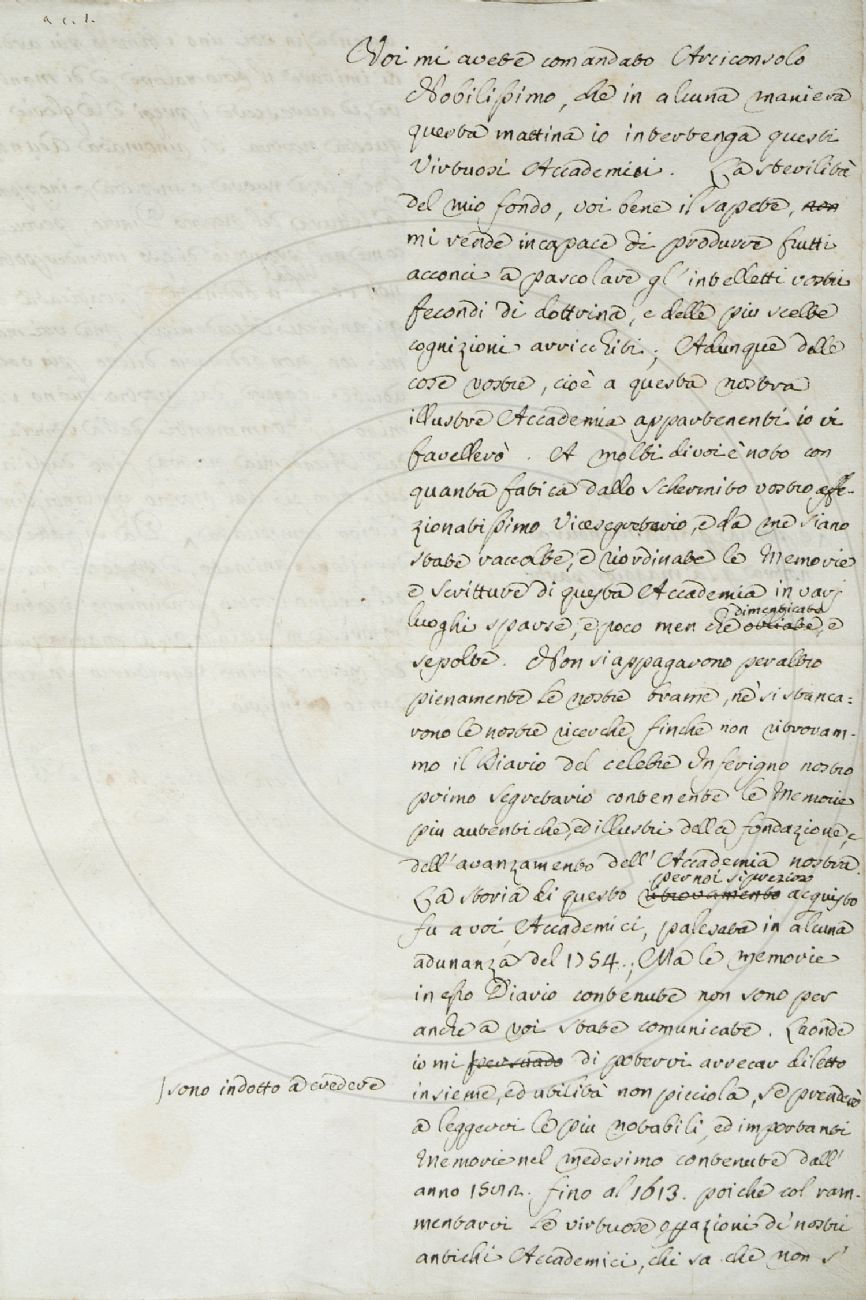 a c. 1.
Voi mi avete comandato Arciconsolo
Nobilissimo, che in alcuna maniera
questa mattina io intertenga questi
Virtuosi Accademici. La sterilità
del mio fondo, voi bene il sapete, non
mi rende incapace di produrre frutti
acconci a pascolare gl'intelletti vostri
fecondi di dottrina, e delle piu scelte
cognizioni arricchiti; Adunque delle
cose vostre, cioè a questa nostra
illustre Accademia appartenenti io vi
favellerò. A molti di voi è noto con
quanta fatica dallo Schermito vostro affe-
zionatissimo Vicesegretario, e da me siano
state raccolte, e riordinate le Memorie
e scritture di questa Accademia in varj
dimenticate
luoghi sparse, e poco men che obliate, e
sepolte. Non si appagarono peraltro
pienamente le nostre brame, nè si stanca=
rono le nostre ricerche finche non ritrovam-
mo il Diario del celebre Inferigno nostro
primo segretario contenente le Memorie
piu autentiche, ed illustri della fondazione, e
dell'avanzamento dell'Accademia nostra.
per noi si prezioso
La storia di questo ritrovamento acquisto
fu a voi, Accademici, palesata in alcuna
adunanza del 1754.; Ma le memorie
in esso Diario contenute non sono per
anche a voi state comunicate. Laonde
io mi persuado di potervi arrecar diletto
sono indotto a credere
insieme, ed utilità non picciola, se prenderò
a leggervi le piu notabili, ed importanti
Memorie nel medesimo contenute dall'
anno fino al 1613. poiche col ram-
mentarvi le virtuose operazioni de' nostri
antichi Accademici, chi sa che non s'